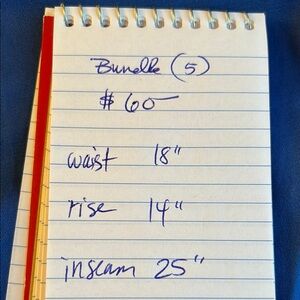 Bundle (5)
$60
waist 18"
rise 14"
inseam 25"